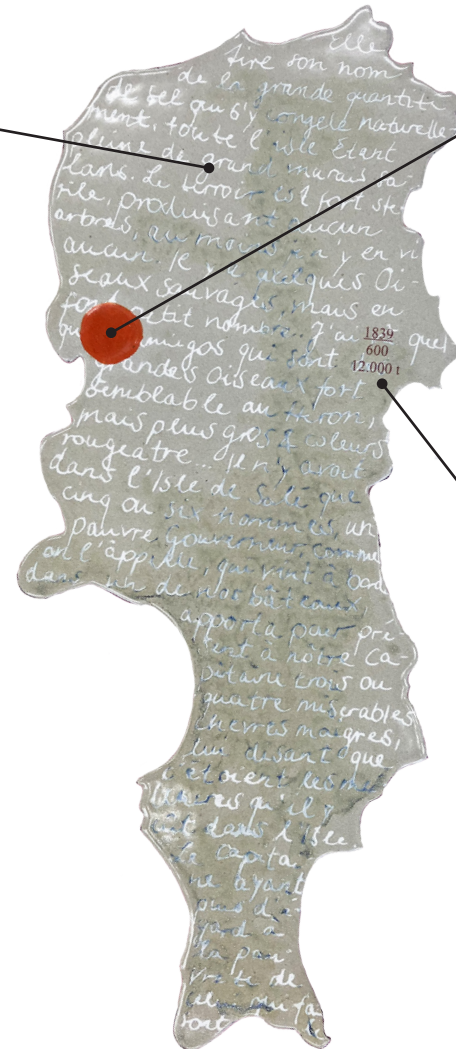 Elle
tire son nom
de la grande quantité
de sel qui s'y congèle naturelle
ment, toute l'isle Etant
pleine de grand marais sa
lans. Le terroir est fort ste
rile, produisant aucun
arbres, au moins n'y en vi
aucun. Je vi quelquis Oi-
seaux sauvages, mais en
petit nombre. J'ai quel
migos qui sont
andes Oiseaux fort
semblable au Heron,
mais plus gros & coleurs
rougeatre... Il n'y avoit
dans l'Isle de que
cinq ou six hommes, un
pauvre Gouverneur comme
on l'âppelle, qui vint à bord
dans un de nos bâteaux,
apporta pour pre
sent à nôtre Ca-
pitaine trois ou
quatre miserables
chevres maigres,
lui disant que
c'etoient les
qu'il y
dans l'Isle.
Le capitai
ne ayant
plus d'é-
gard à
la pau
vreté de
1839
600
12.000 t